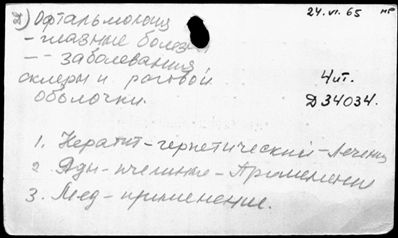 2) Офтальмология 24.VI.65 нр
- глазные болезни
- - заболевания
склеры и роговой Чит.
оболочки. Д34034.
1. Кератит - герпетический - Лечение
2. Яды - пчелиные - Применение
3. Мед - применение.